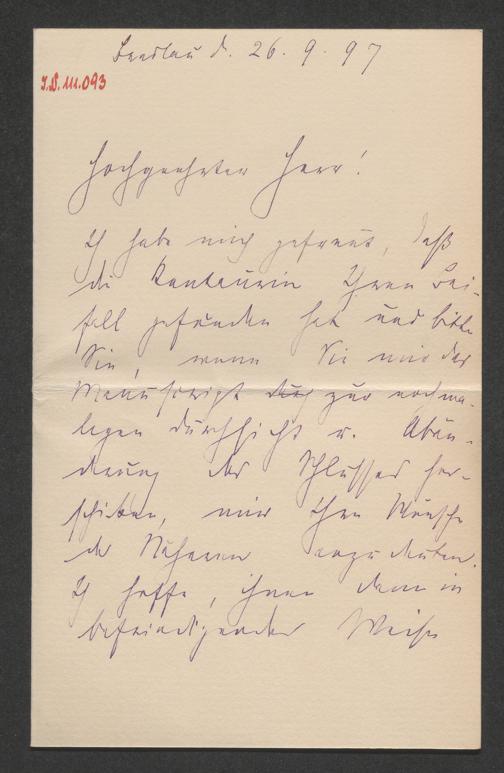 Breslau d. 26. 9. 97
I.N. 111.093
Hochgeehrter Herr!
Ich habe mich gefreut, daß
die Kentaurin Ihren Bei-
fall gefunden hat und bitte
Sie, wenn Sie mir das
Manuscript zur nochma-
ligen Durchsicht u. Abän-
derung des Schlusses her-
schicken, mir Ihre Wünsche
des Näheren anzudeuten.
Ich hoffe, ihnen dann in
befriedigender Weise